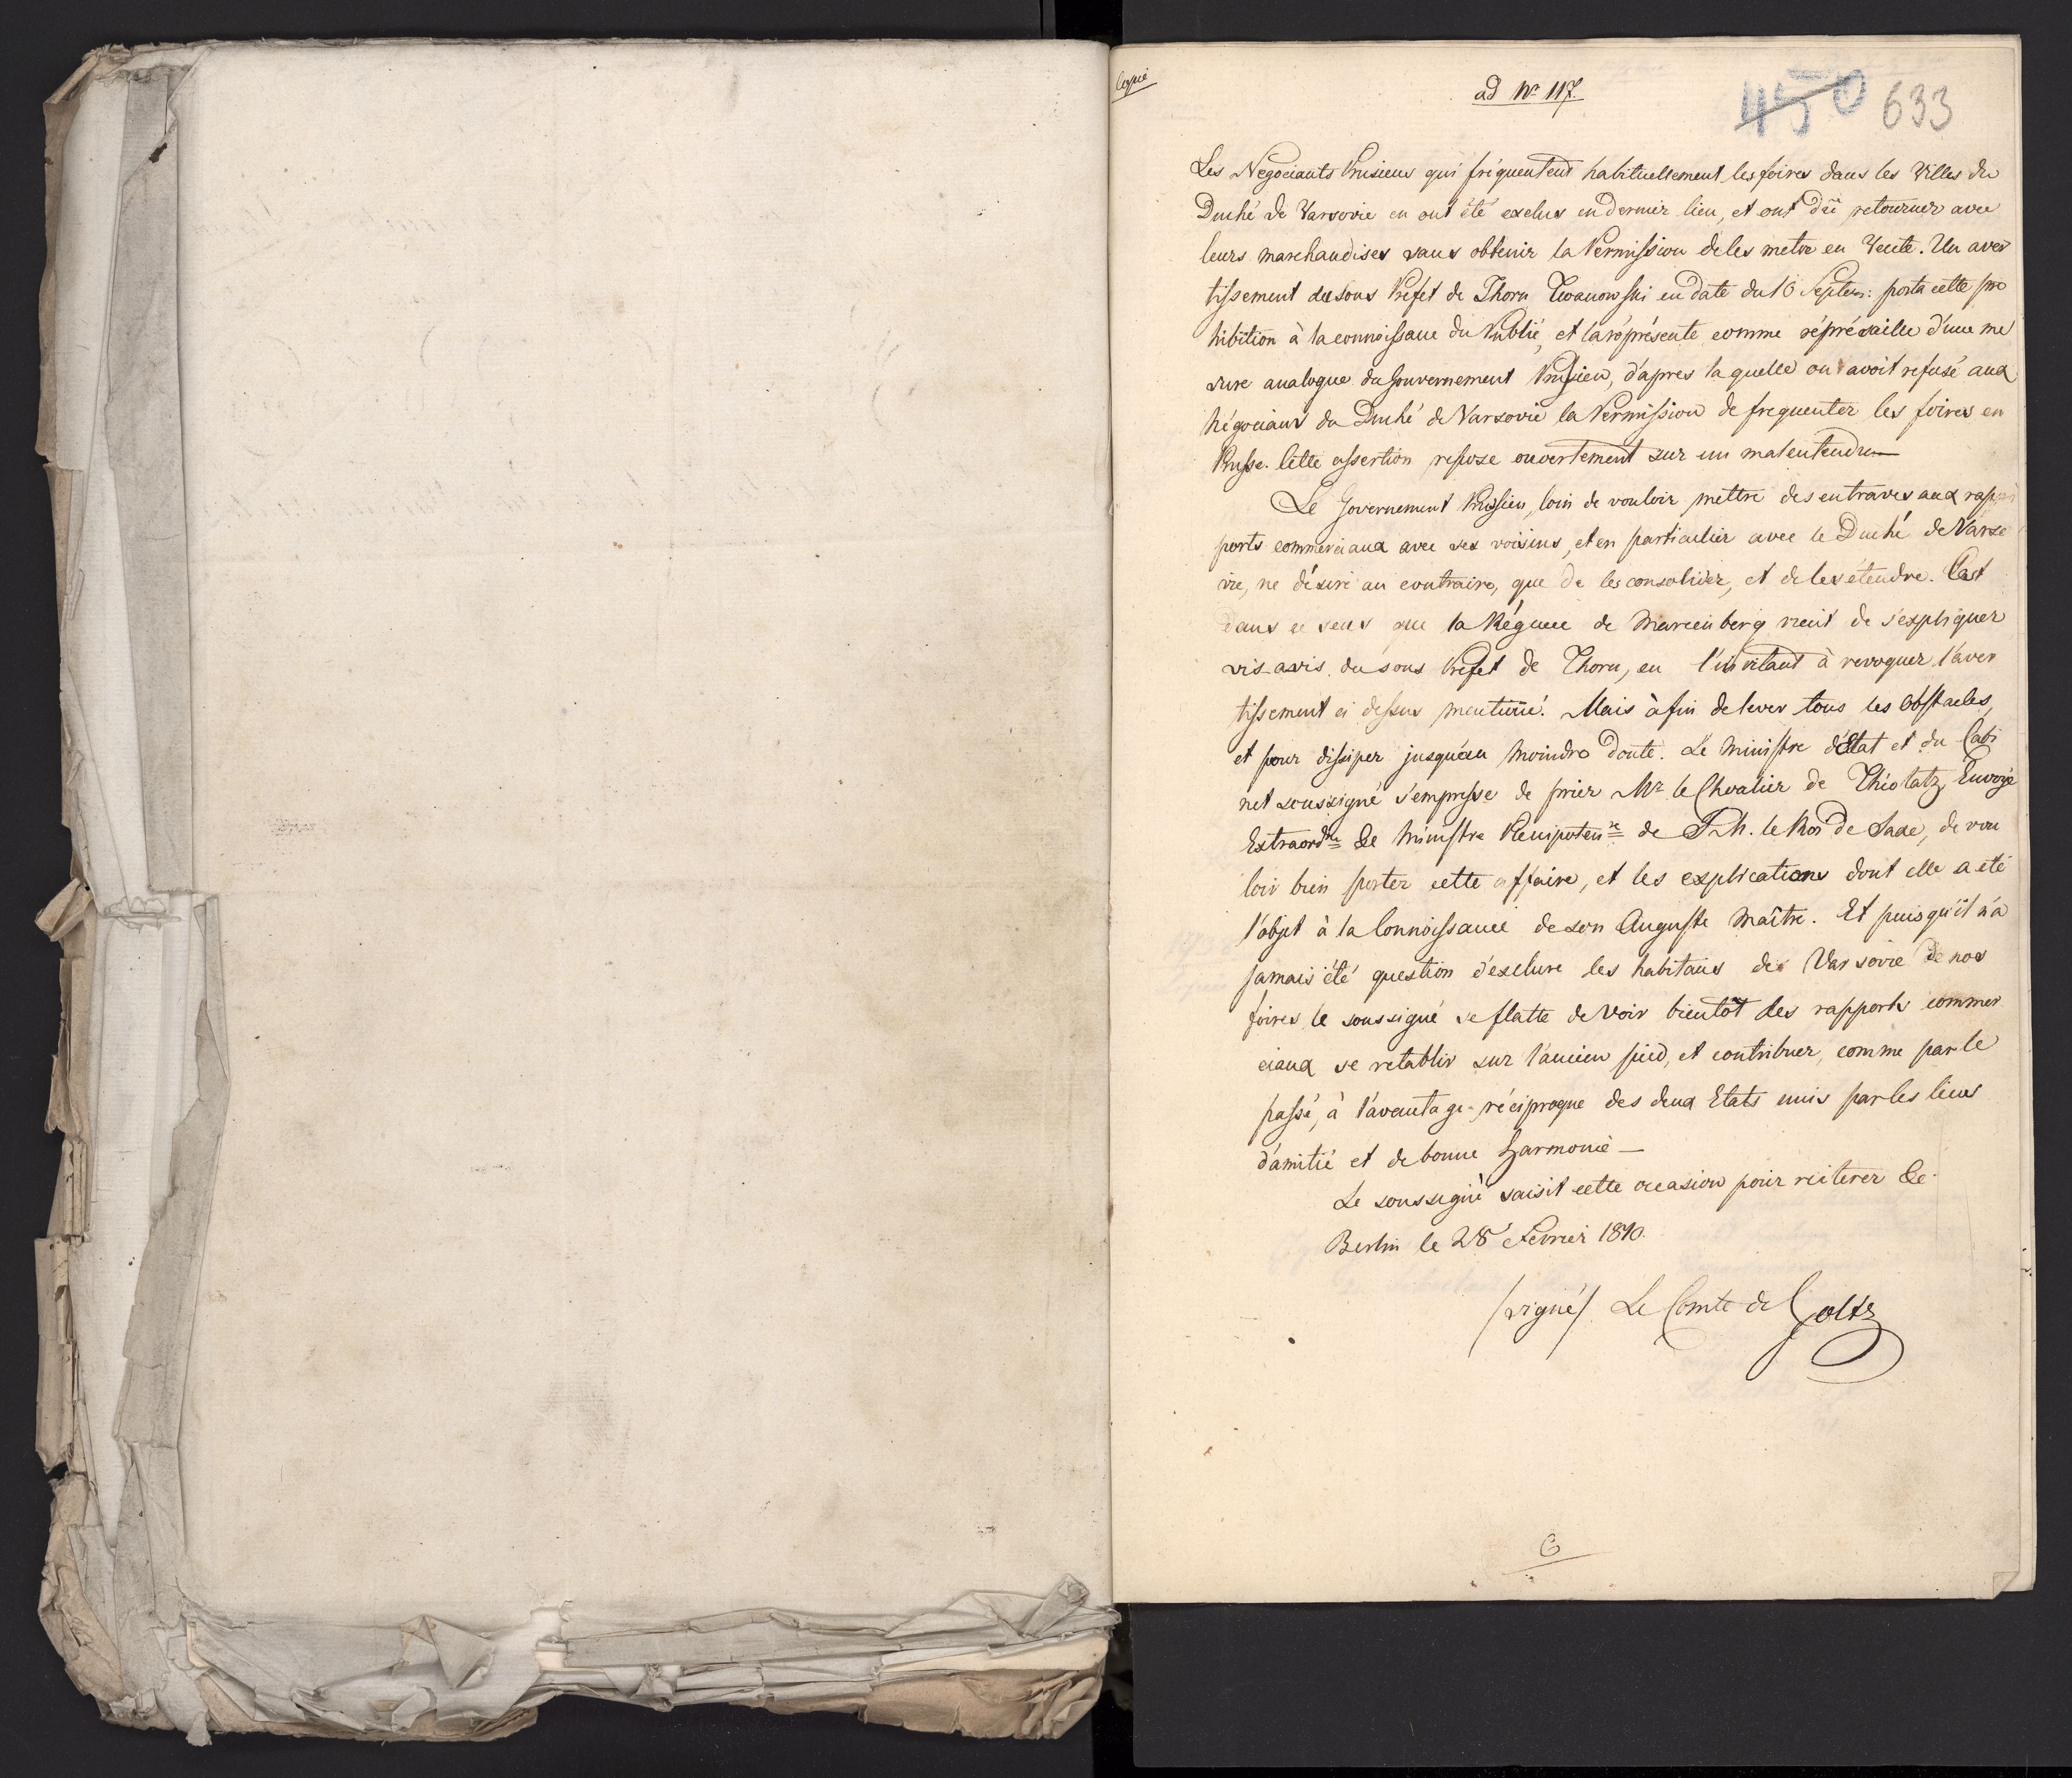 Copie
ad Nr 117.
450 633
Les Négociants Prusiens qui fréquentent habituellement les foires dans les Villes du
Duché de Varsovie en ont été exclus en dernier lieu, et ont dû retourner avec
leurs marchandises sans obtenir la Permission de les metre en Vente. Un aver
tissement du sous Préfet de Thorn Iwanowski en date du 16 Septem: porta cette pro
hibition à la connoissance du Public, et la réprésente comme répresaille d'une me
sure analogue du Gouvernement Prussien, d'apres la quelle on avoit refusé aux
Négocians du Duché de Varsovie la Permission de frequenter les foires en
Prusse. Cette assertion repose ouvertement sur un malentendu—
Le Governement Prussien, loin de vouloir mettre des entraves aux rap
ports commerciaux avec ses voisins, et en particulier avec le Duché de Varso
vie, ne désire au contraire, que de les consolider, et de les étendre. C'est
dans ce sens que la Régence de Marienberg vient de s'expliquer
vis-avis du sous Préfet de Thorn, en l'invitant à revoquer l'aver
tissement ci dessus mentioné. Mais àfin de lever tous les Obstacles,
et pour dissiper jusqu'au moindre doute. Le Ministre d'Etat et du Cabi
net soussigné s'empresse de prier Mr le Chvalier de Thiolatz Envoyé
Extraordre & Ministre Plenipotenre de S. M. le Roi de Saxe, de vou
loir bien porter cette affaire, et les explications dont elle a eté
l'objet à la Connoissance de son Auguste Maître. Et puis qu'il n'a
jamais été question d'exclure les habitans de Varsovie de nos
foires le soussigné se flatte de Voir bientôt les rapports commer
ciaux se retablir sur l'ancien pied, et contribuer, comme par le
passé, à l'avantage réciproque des deux Etats unis par les liens
d'amitié et de bonne Harmonie —
Le soussigné saisit cette occasion pour reiterer &c.
Berlin le 28 Fevrier 1810.
/signé/ Le Comte de Goltz